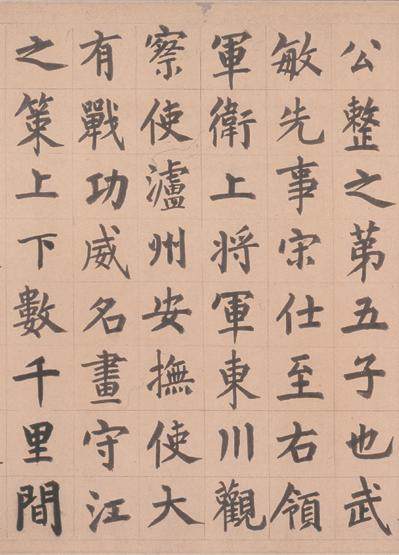 公整之苐五子也武
敏先事宋仕至右領
軍衛上将軍東川觀
察使瀘州安撫使大
有戰功威名畫守江
之策上下數千里間